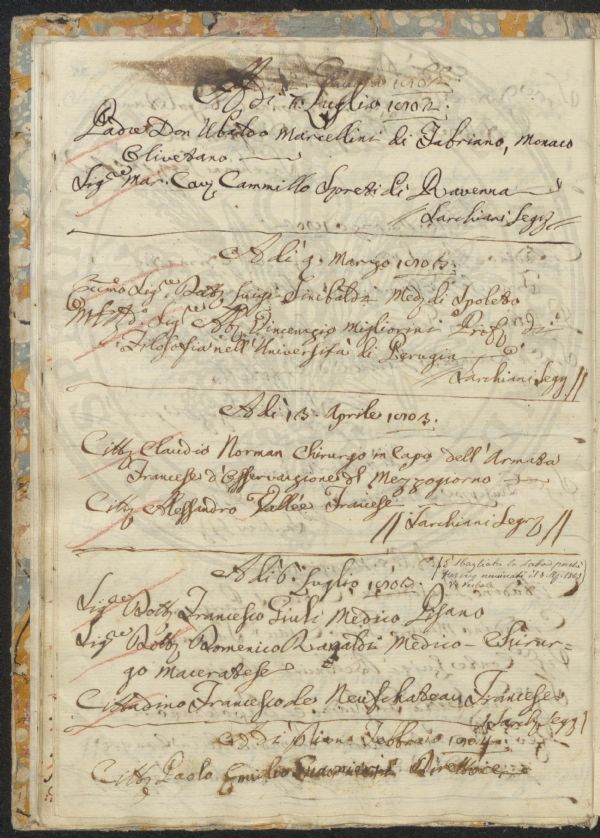 Adi 11. Luglio 1802.
Padre Don Ubaldo Marcellini di Fabriano, Monaco
Olivetano
Sig.re Mar. Cav. Cammillo Spreti di Ravenna
Tarchiani Segr.
Adi 9. Marzo 1803.
Sig.re Dott. Luigi Sinibaldi Med. di Spoleto
Sig.re Ab. Vincenzio Migliorini Prof. di
Filosofia nell'Università di Perugia
Tarchiani Segr.
Adi 13. Aprile 1803.
Citt. Claudio Norman Chirurgo in Capo dell'Armata
Francese d'Osservazione del Mezzogiorno
Citt. Alessandro Vallée Francese
Tarchiani Segr.
È sbagliata la data perchè
nominati il
Adi 6. Luglio 1803.
Sig.re Dott. Francesco Giuli Medico Pisano
Sig.re Dott. Domenico Rinaldi Medico-Cirur-
go Maceratese
Cittadino Francesco de Neufchateau Francese
Tarch. Segr.
Adi primo Febbraio 1804.
Citt. Paolo Emilio Direttore